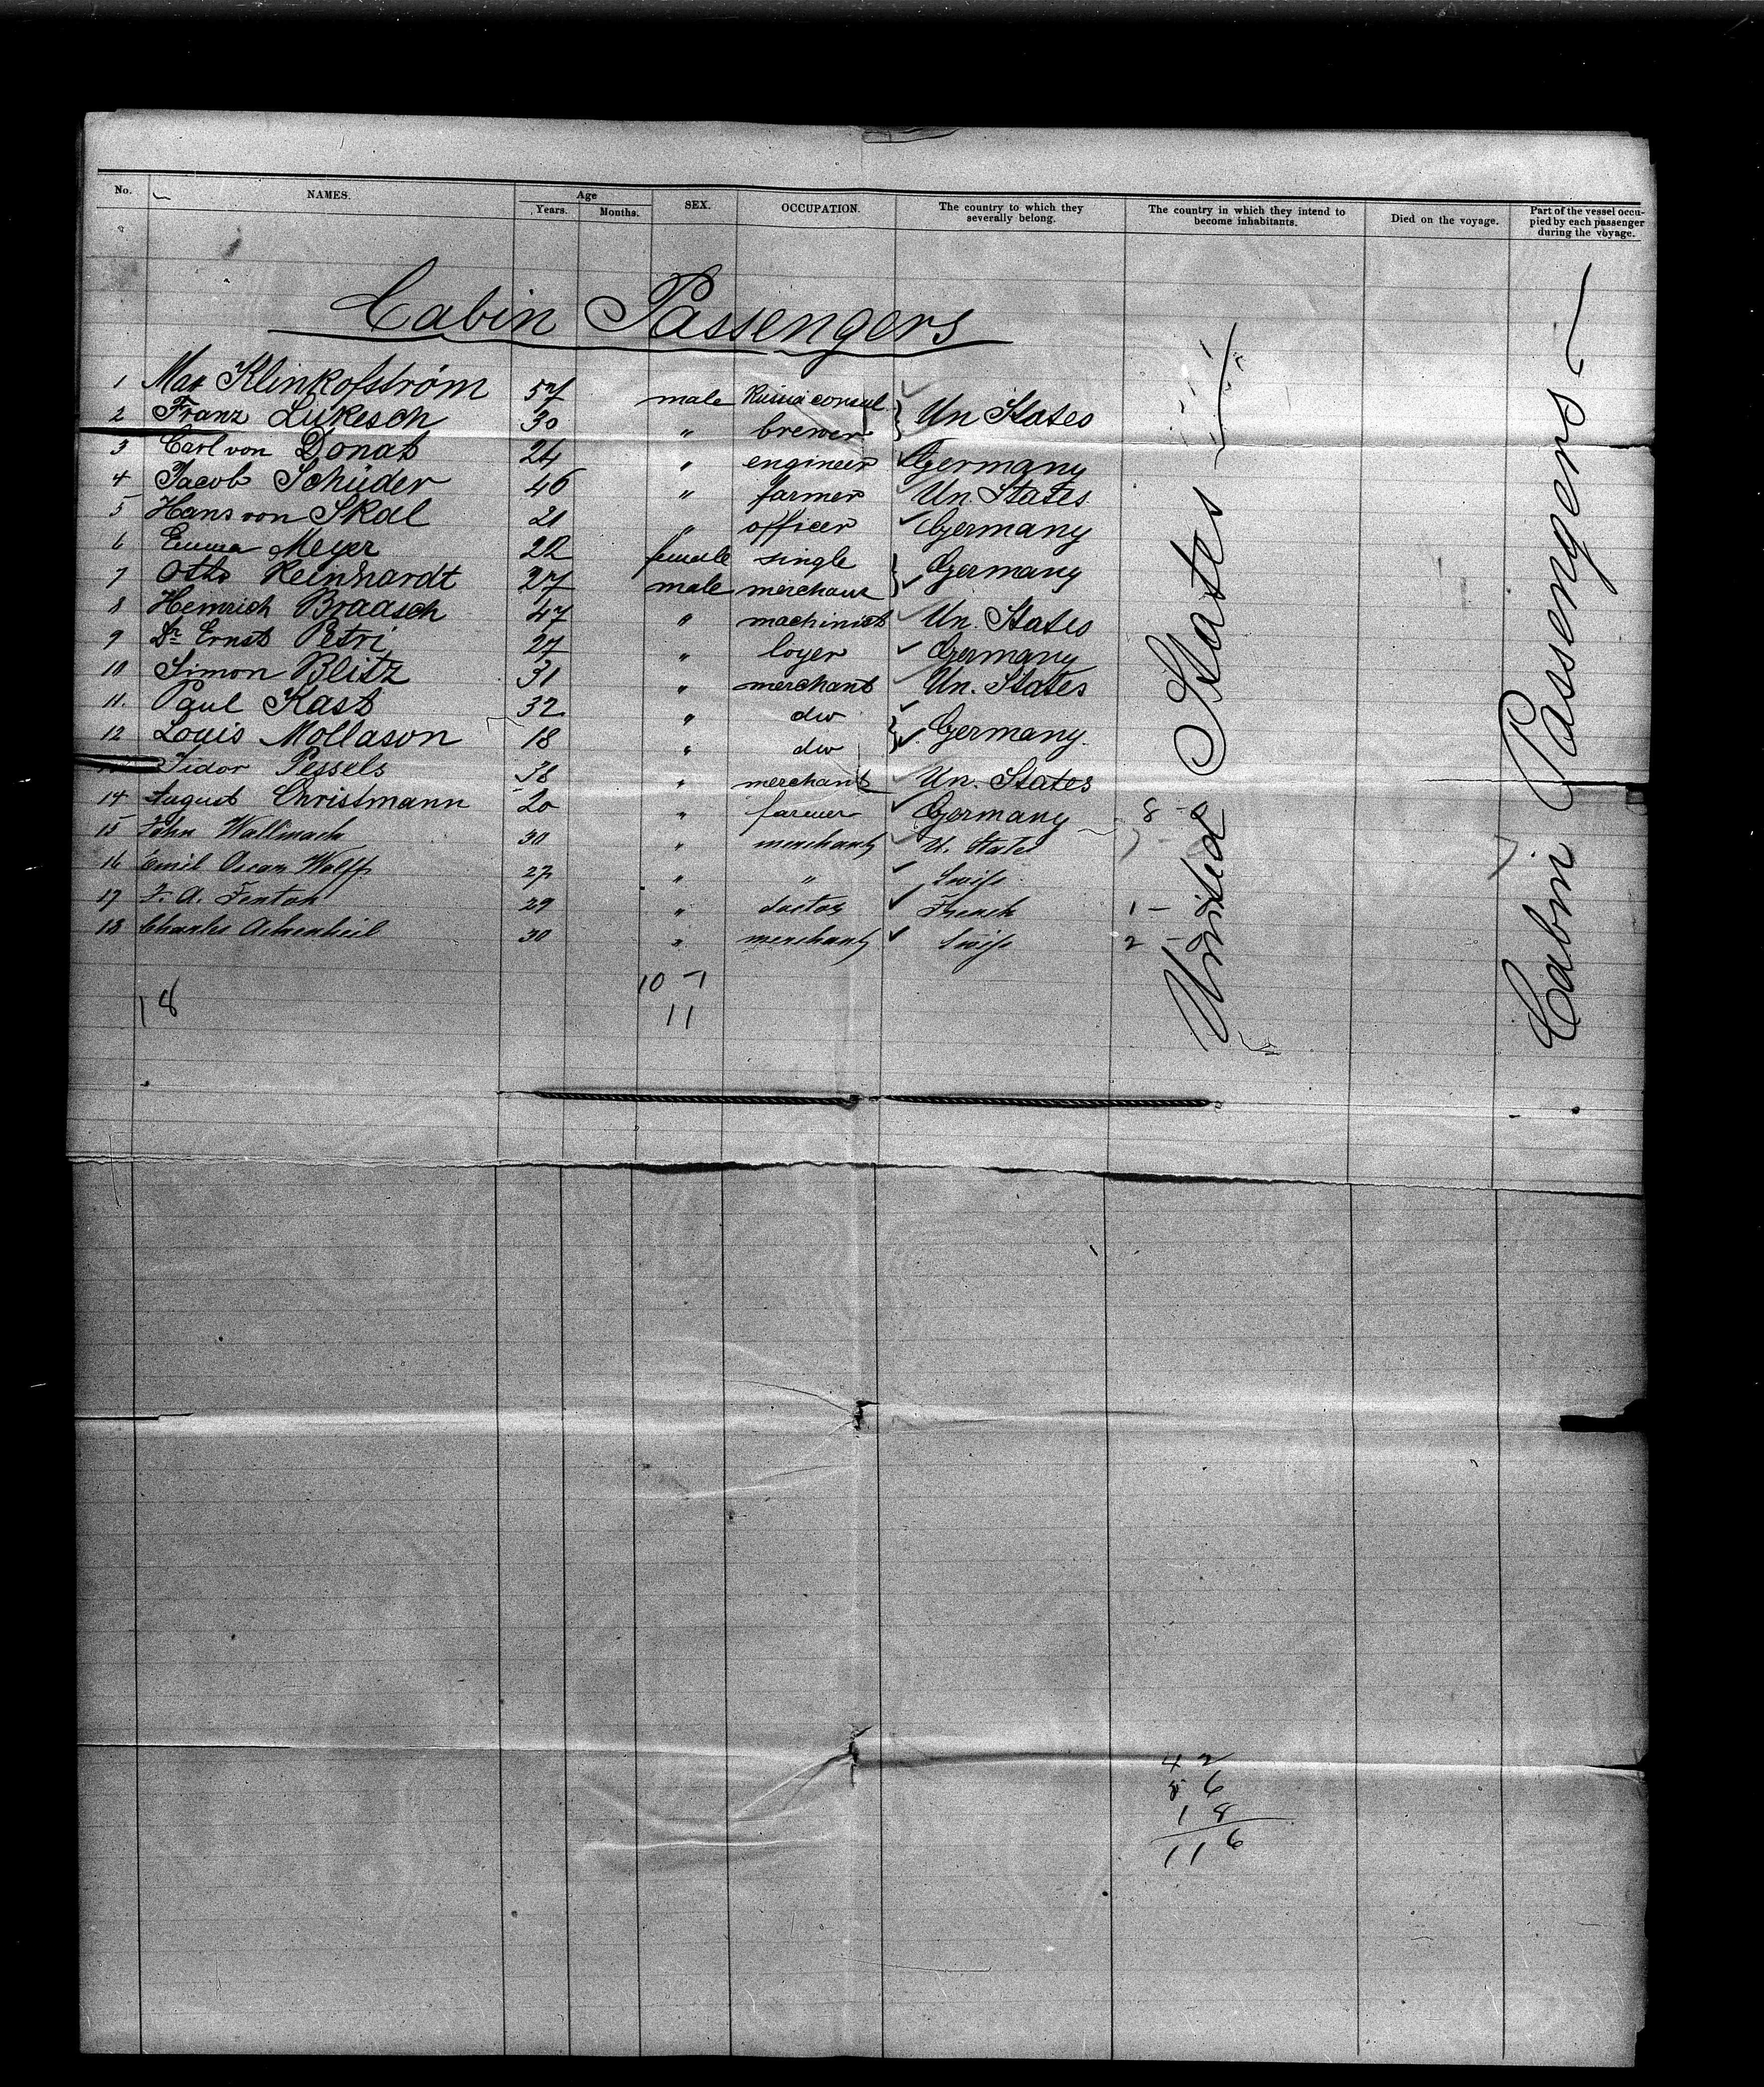 No. NAMES. Age Years. Months. SEX. OCCUPATION. The country to which they severally belong. The country in which they intend to become inhabitants. Died on the voyage. Part of the vessel occupied by each passenger during the voyage.
Cabin Passengers
1 Max Klinkofström 57 male Russia consul
2 Franz Lukesch 30 " brewer } Un States
3 Carl von Donat 24 " engineer Germany
4 Jacob Schüder 46 " farmer Un. States
5 Hans von Skal 21 " officer Germany
6 Emma Meyer 22 female single
7 Otto Reinhardt 27 male merchant } Germany
8 Heinrich Braasch 47 " machinist Un. States
9 Dr Ernst Petri 27 " loyer Germany
10 Simon Blitz 31 " merchant Un. States
11. Paul Kast 32 " do
12 Louis Mollason 18 " do } Germany.
Isidor Pessels 38 " merchant Un. States
14 August Christmann 20 " farmer Germany 8
15 John Wallmach 30 " merchant U. States
16 Emil Oscar Wolff 27 " " Swiss
17 F. A. Fenton 29 " doctor French 1 –
18 Charles 30 " merchant Swiss 2
United States
Cabin Passengers
10 7
18 11
42
56
18
116